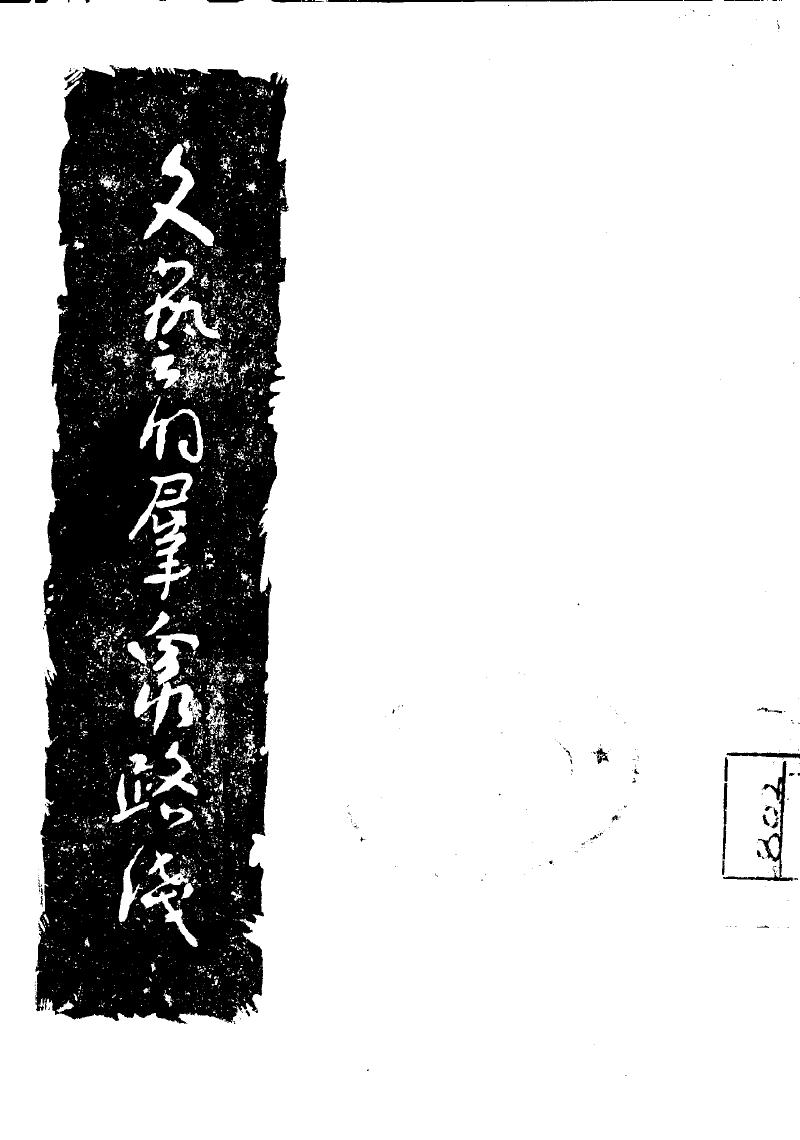 文藝的羣眾路綫
802